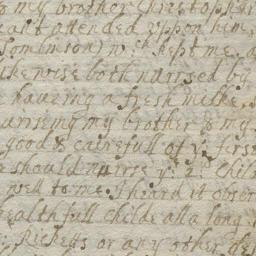 my brother Christophe
attended uppon him,
Tomlinson) wch kept me, a
likewise both nurrsed by
haveing a fresh milke,
nurrseing my brother & my
good & carefull of ye firs
e should nurrse ye 2d Chil
well to me. I heard it obser
healthfull childe all a long
Ricketts or any other de